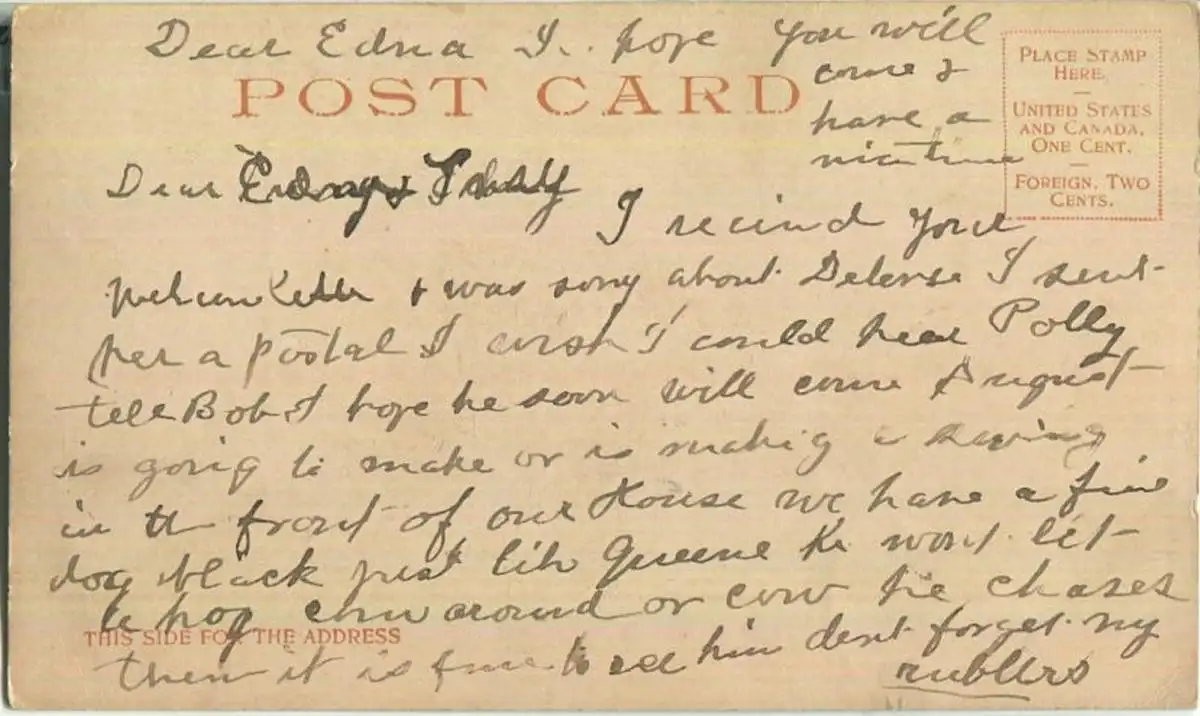 Dear Edna I.. hope you will
come &
have a
nice time
POST CARD
PLACE STAMP
HERE,
UNITED STATES
AND CANADA,
ONE CENT.
FOREIGN, TWO
CENTS.
Dear
I recivd your
& was sorry about I sent
her a postal I wish I could hear Polly
tell Bob I hope he soon will come August
is going to make or is making a
in the front of our House we have a fine
dog black just like Queene he wont let
hog come around or cow he chases
THIS SIDE FOR THE ADDRESS
them it is fine to see him dont forget my
rubbers